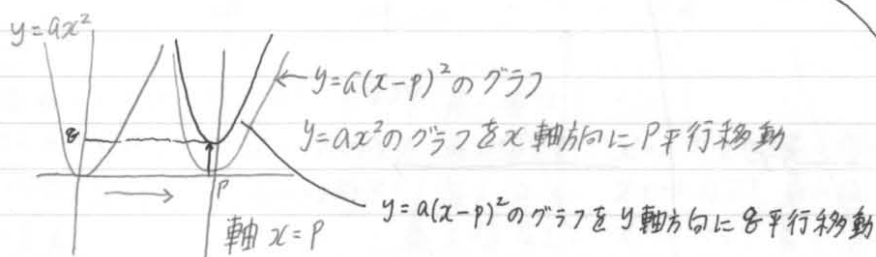 y=ax²
y=a(x-p)²のグラフ
y=ax²のグラフをx軸方向にP平行移動
q
P
y=a(x-p)²のグラフをy軸方向にq平行移動
軸 x=P